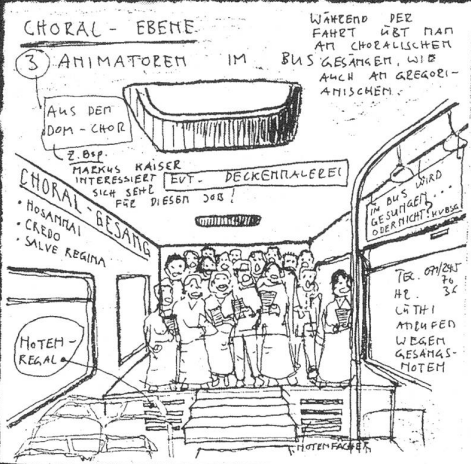 CHORAL - EBENE
WÄHREND DER
FAHRT ÜBT MAN
AM CHORALISCHEN
GESÄNGEN, WIE
AUCH AN GREGORI-
ANISCHEN.
3 ANIMATOREN IM BUS
AUS DEM
DOM-CHOR
Z.Bsp.
MARKUS KAISER
INTERESSIERT
SICH SEHR
FÜR DIESEN JOB!
EVT. DECKENMALEREI
CHORAL-GESANG
• HOSANNAI
• CREDO
• SALVE REGINA
IM BUS WIRD
GESUNGEN...
ODER NICHT?
TEL. 071/245
76
36
HR.
LÜTHI
ANRUFEN
WEGEN
GESANGS-
NOTEN
NOTEN-
REGAL
NOTENFÄCHER